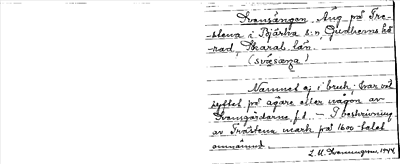 Svensängen. Äng på Tre-
stena i Bjärka s:n, Gudhems hä-
rad, Skarab. län.
(svæsaŋa)
Namnet ej i bruk; har väl
syftat på ägare eller någon av
Svensgårdarne, f.d. — I beskrivning
av Trästena mark på 1600-talet
omnämnd.
L. M. Svenungsson, 1944